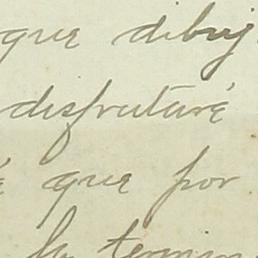 que dibuj
disfrutaré
que por
la termin